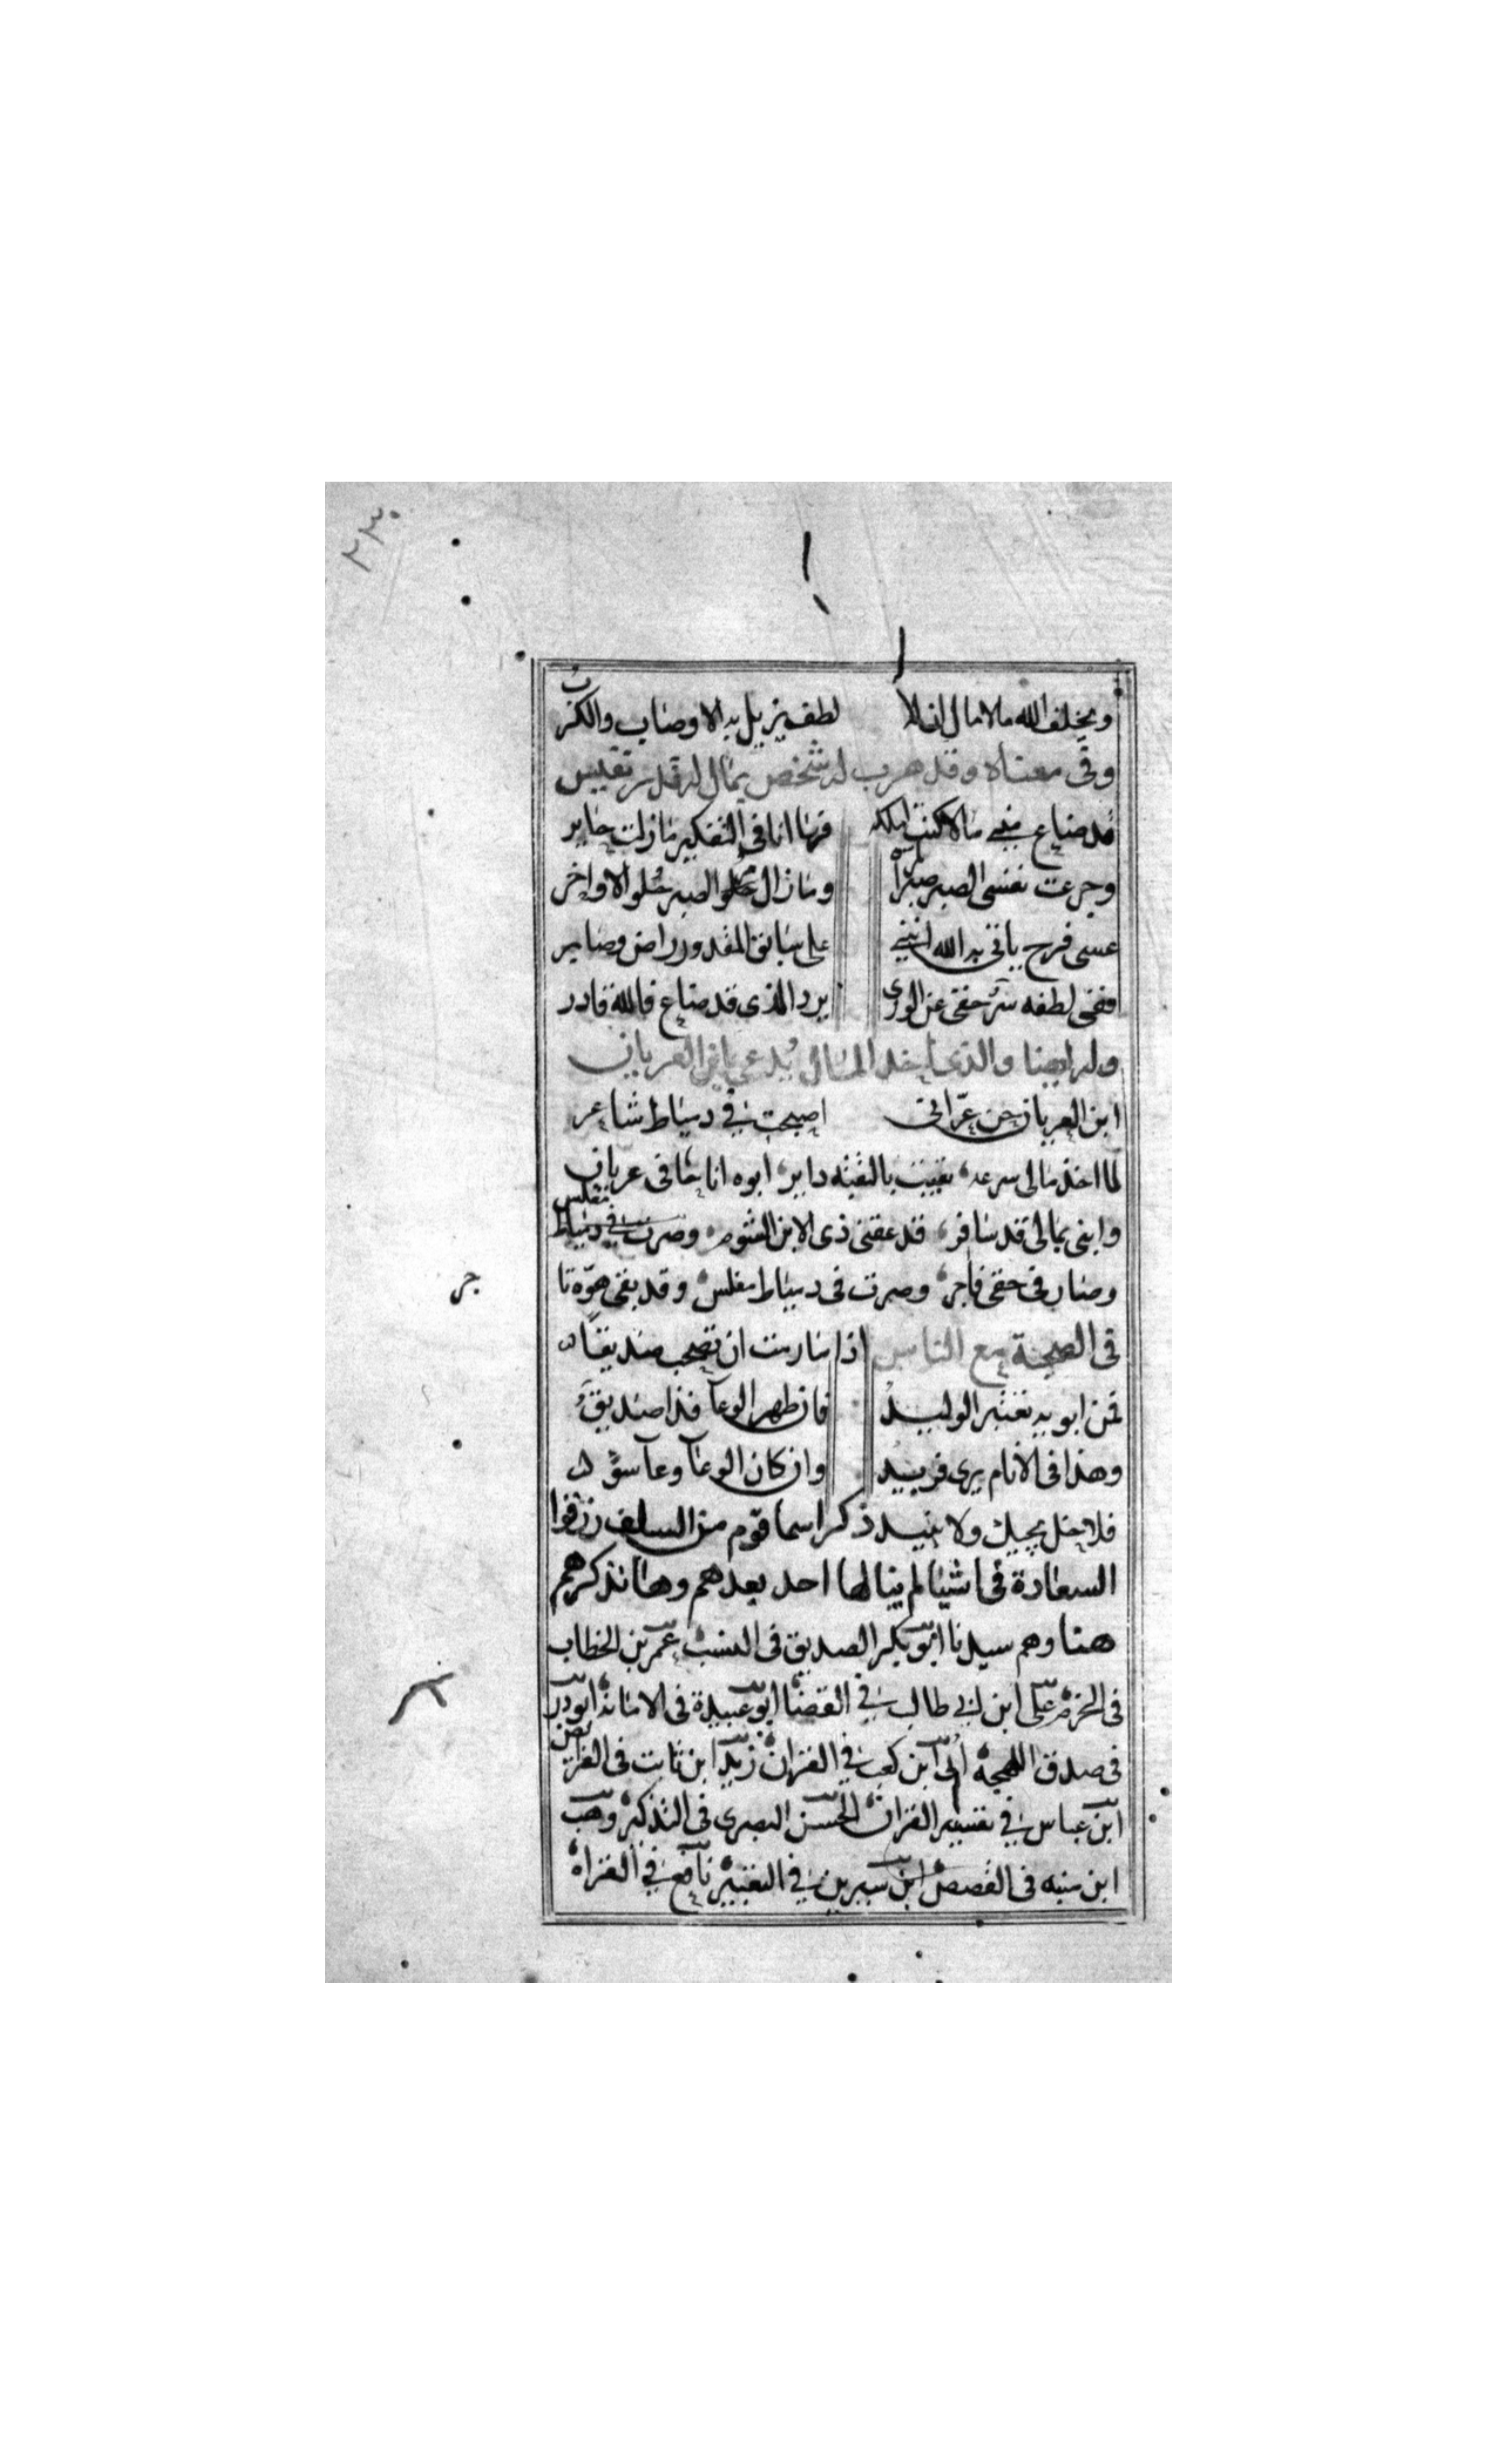 ٢٣٠
ويخلف الله مالا مال ان له لطف يزيل به الاوصاب والكرب
وفى معناه وقد هرب له شخص بمال له قدر نفيس
قد ضاع منى مالا كنت املكه فها انا فى التفكير مازلت حاير
وجرعت نفسى الصبر صبرا ومازال مر الصبر حلو الاواخر
عسى فرح ياتى به الله اننى على سابق المقدور راض وصابر
ففى لطفه سر خفى عن الورى يرد الذى قد ضاع فالله قادر
وله ايضا والذى اخذ المال يدعى بابن العريان
ابن العريان حن عرّانى اصبحت فى دمياط شاعر
لما اخذ مالى سرعه بقيت بالنقبه داير ابوه انا حافى عريان
وابنى بمالى قد سافر قد عقنى ذى الابن الشوم وصرت فى دمياط مفلس
وصار فى حقى فاجر وصرت فى دمياط مفلس وقد بقى هوّ تا
جر
فى الصحبة مع الناس اذا ما رمت ان تصحب صديقا
فمن ابويه تعتبر الوليد فان طهر الوعا فذا صديق
وهذا فى الانام يرى فريد وان كان الوعا وعا سوّ
فلا يحيك ولا يفيد ذكر اسما قوم من السلف رزقوا
السعادة فى اشيا لم ينالها احد بعدهم وها نذكرهم
هنا وهم سيدنا ابو بكر الصديق فى النسب عمر بن الخطاب
فى الحزم على ابن ابى طالب فى القضا ابو عبيدة فى الامانة ابو در
فى صدق اللهجه أبى ابن كعب فى القران زيد ابن ثابت فى الفرائض
ابن عباس فى تفسير القران الحسن البصرى فى التذكير وهب
ابن منبه فى القصص ابن سيرين فى التعبير نافع فى القراه